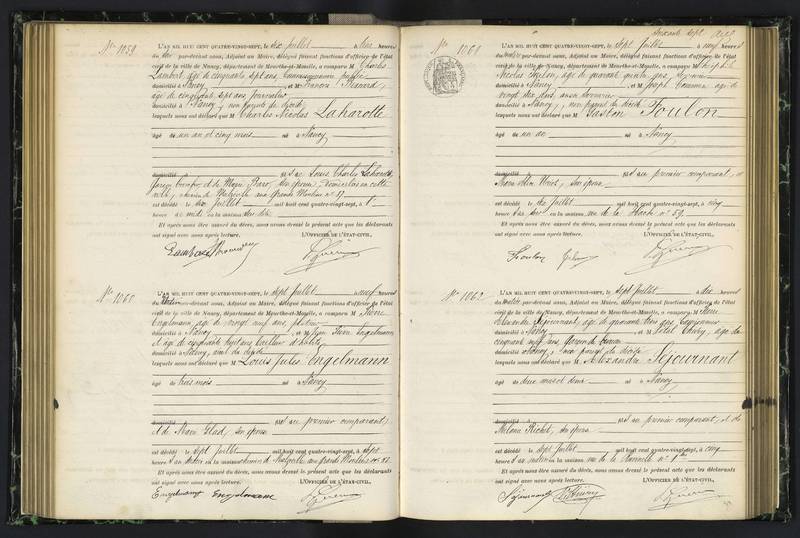 No 1059
L'AN MIL HUIT CENT QUATRE-VINGT-SEPT, le six Juillet à heures
du soir par-devant nous, Adjoint au Maire, délégué faisant fonctions d'officier de l'état
civil de la ville de Nancy, département de Meurthe-et-Moselle, a comparu M Charles
Lambert, âgé de cinquante sept ans, commissionnaire public
domicilié à Nancy, et M François
âgé de cinquante sept ans, journalier
domicilié à Nancy, non parents du décédé
lesquels nous ont déclaré que M Charles Nicolas Laharotte
âgé de un an et cinq mois né à Nancy
domicilié fils de Louis Charles Laharotte,
et de Marie son épouse, domiciliés en cette
ville, chemin de Malzéville aux Grands Moulins no 17
est décédé le six Juillet mil huit cent quatre-vingt-sept, à
heures de midi en la maison
Et après nous être assuré du décès, nous avons dressé le présent acte que les déclarants
ont signé avec nous après lecture.
L'OFFICIER DE L'ÉTAT-CIVIL,
No 1060
L'AN MIL HUIT CENT QUATRE-VINGT-SEPT, le sept Juillet à neuf heures
du matin par-devant nous, Adjoint au Maire, délégué faisant fonctions d'officier de l'état
civil de la ville de Nancy, département de Meurthe-et-Moselle, a comparu M Pierre
Engelmann, âgé de vingt neuf ans,
domicilié à Nancy, et M Jean Pierre Engelmann,
âgé de cinquante huit ans tailleur d'habits,
domicilié à Nancy, aïeul du décédé
lesquels nous ont déclaré que M Louis Jules Engelmann
âgé de trois mois né à Nancy
domicilié fils du premier comparant,
et de Marie Glad, son épouse
est décédé le sept Juillet mil huit cent quatre-vingt-sept, à sept
heures du matin en la maison chemin de Malzéville aux Grands Moulins no 27.
Et après nous être assuré du décès, nous avons dressé le présent acte que les déclarants
ont signé avec nous après lecture.
L'OFFICIER DE L'ÉTAT-CIVIL,
Engelmann Engelmann
soixante sept
No 1061
L'AN MIL HUIT CENT QUATRE-VINGT-SEPT, le sept Juillet à neuf heures
du matin par-devant nous, Adjoint au Maire, délégué faisant fonctions d'officier de l'état
civil de la ville de Nancy, département de Meurthe-et-Moselle, a comparu M
Nicolas Foulon, âgé de quarante quatre ans,
domicilié à Nancy, et M Joseph âgé de
vingt six ans
domicilié à Nancy, non parent du décédé
lesquels nous ont déclaré que M Gaston Foulon
âgé de un an né à Nancy
domicilié fils du premier comparant, et
son épouse
est décédé le six Juillet mil huit cent quatre-vingt-sept, à cinq
heures du soir en la maison, rue de la no 59.
Et après nous être assuré du décès, nous avons dressé le présent acte que les déclarants
ont signé avec nous après lecture.
L'OFFICIER DE L'ÉTAT-CIVIL,
Foulon
No 1062
L'AN MIL HUIT CENT QUATRE-VINGT-SEPT, le sept Juillet à dix heures
du matin par-devant nous, Adjoint au Maire, délégué faisant fonctions d'officier de l'état
civil de la ville de Nancy, département de Meurthe-et-Moselle, a comparu M Pierre
Alexandre Séjournant, âgé de quarante trois ans
domicilié à Nancy, et M âgé de
cinquante sept ans, garçon de bureau
domicilié à Nancy, non parent du décédé
lesquels nous ont déclaré que M Alexandre Séjournant
âgé de deux mois et demi né à Nancy
domicilié fils du premier comparant, et de
Mélanie Richet, son épouse
est décédé le sept Juillet mil huit cent quatre-vingt-sept, à cinq
heures du matin en la maison rue de la
Et après nous être assuré du décès, nous avons dressé le présent acte que les déclarants
ont signé avec nous après lecture.
L'OFFICIER DE L'ÉTAT-CIVIL,
Séjournant